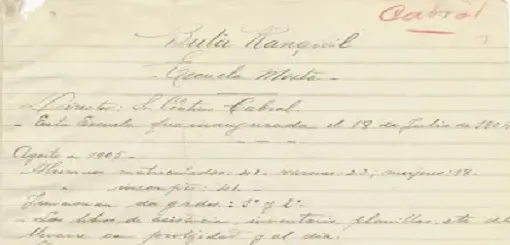 Cabral
Butá Ranquil
Escuela Mixta -
Director: S. Cabral
- Esta Escuela fue inaugurada el 12 de Julio de 1904
Agosto - 1905 -
Alumnos matriculados: 41 - varones: 23; mujeres: 18 -
" inscriptos: 41 -
Funcionan dos grados: 1º y 2º -
Los libros de asistencia, inventario, planillas, etc. 
llevan con prolijidad y al día.